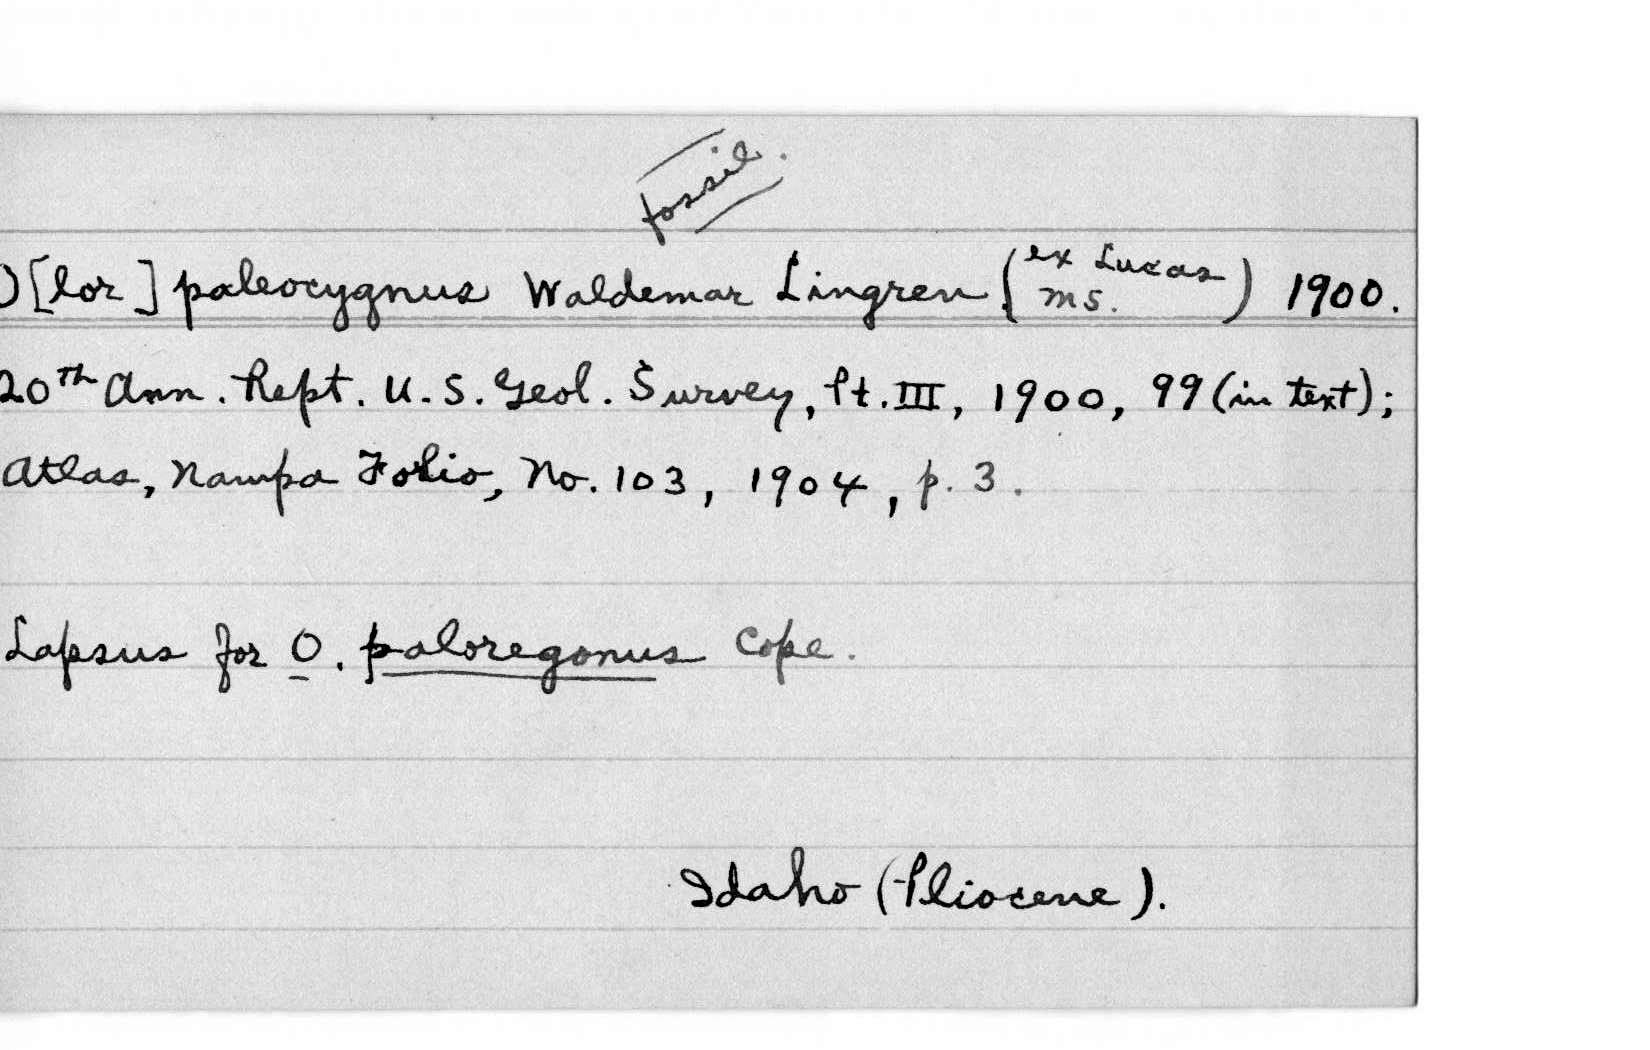 fossil.
O[lor] paleocygnus Waldemar Lingren (ex Lucas ms.) 1900.
20th Ann. Rept. U.S. Geol. Survey, Pt. III, 1900, 99 (in text);
Atlas, Nampa Folio, No. 103, 1904, p. 3.
Lapsus for O. paloregonus Cope.
Idaho (Pliocene).